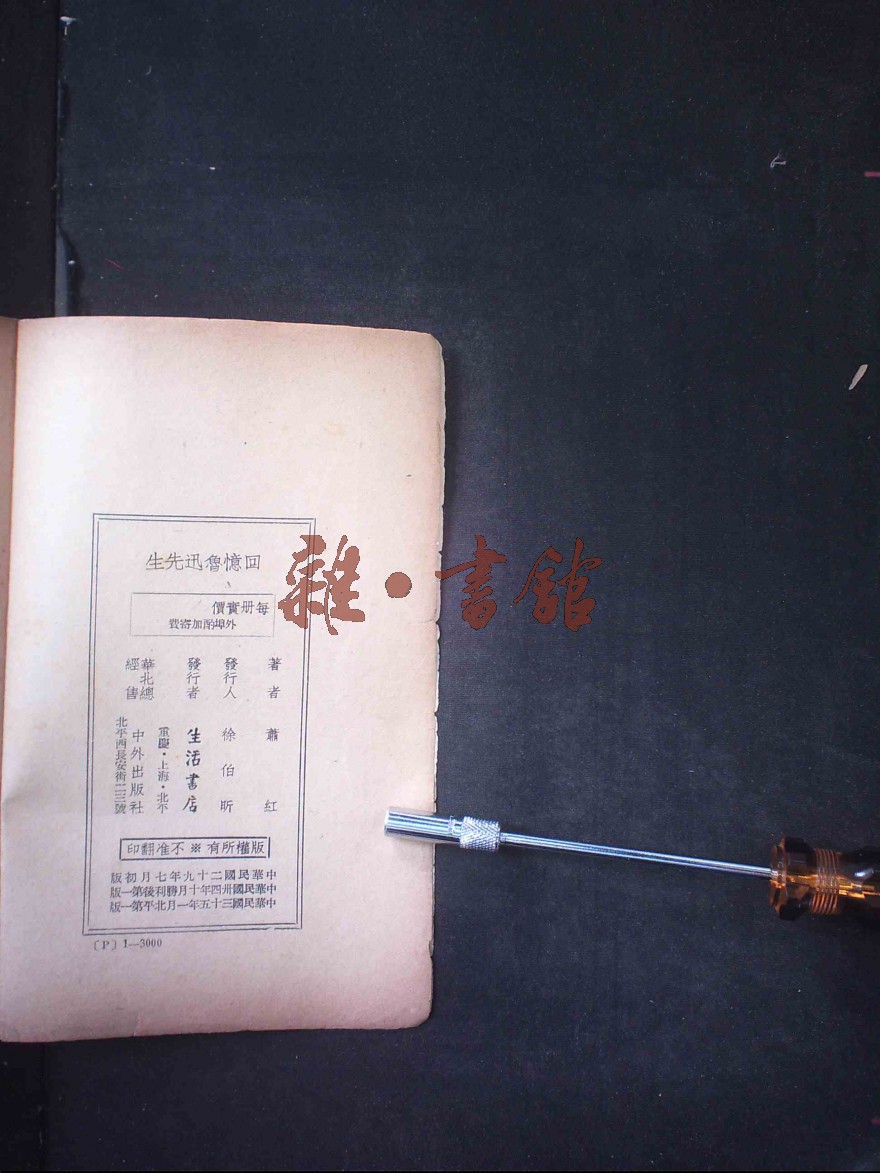 回憶魯迅先生
每册實價
外埠酌加寄費
著者 蕭紅
發行人 徐伯昕
發行者 生活書店
重慶・上海・北平
華北總經售 中外出版社
北平西長安街一三號
版權所有※不准翻印
中華民國二十九年七月初版
中華民國卅四年十月勝利後第一版
中華民國三十五年一月北平第一版
〔P〕1—3000
雜・書館